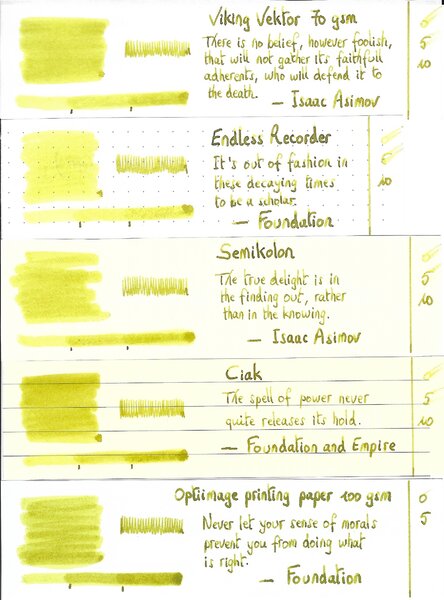 Viking Vektor 70 gsm
There is no belief, however foolish,
that will not gather its faithfull
adherents, who will defend it to
the death.
— Isaac Asimov
0
5
10
Endless Recorder
It's out of fashion in
these decaying times
to be a scholar.
— Foundation
10
Semikolon
The true delight is in
the finding out, rather
than in the knowing.
— Isaac Asimov
5
10
Ciak
The spell of power never
quite releases its hold.
— Foundation and Empire
5
10
Optiimage printing paper 100 gsm
Never let your sense of morals
prevent you from doing what
is right.
— Foundation
0
5